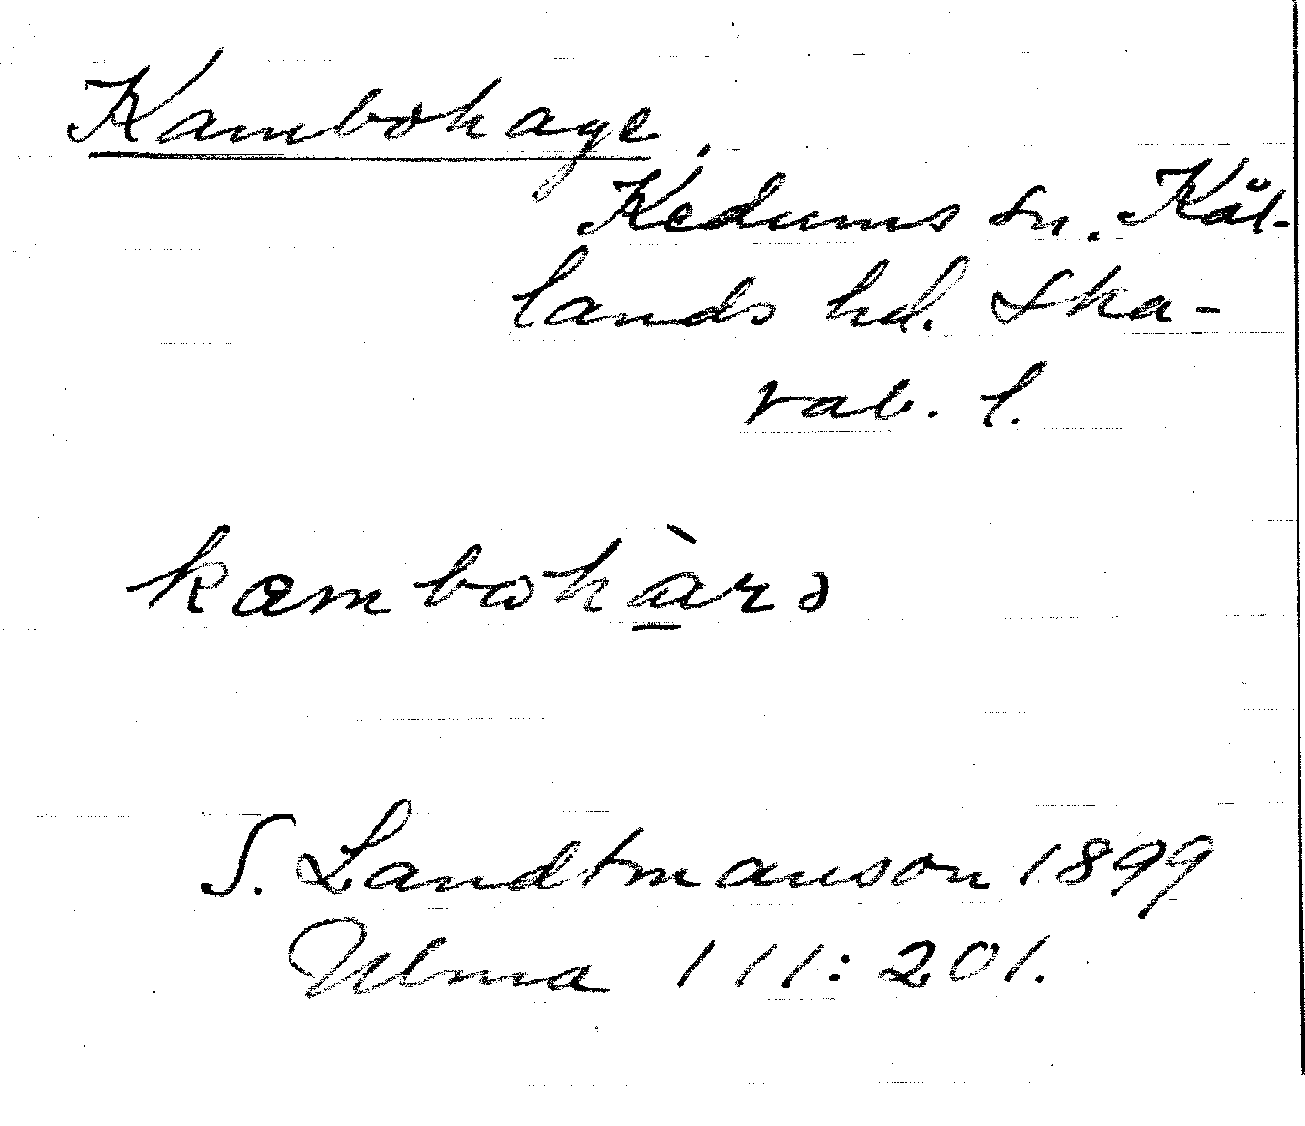 Kambohage,
Kedums sn. Kål-
lands hd. Ska-
rab. l.
kæmbωhàrə
S. Landtmanson 1899
Ulma 111:201.